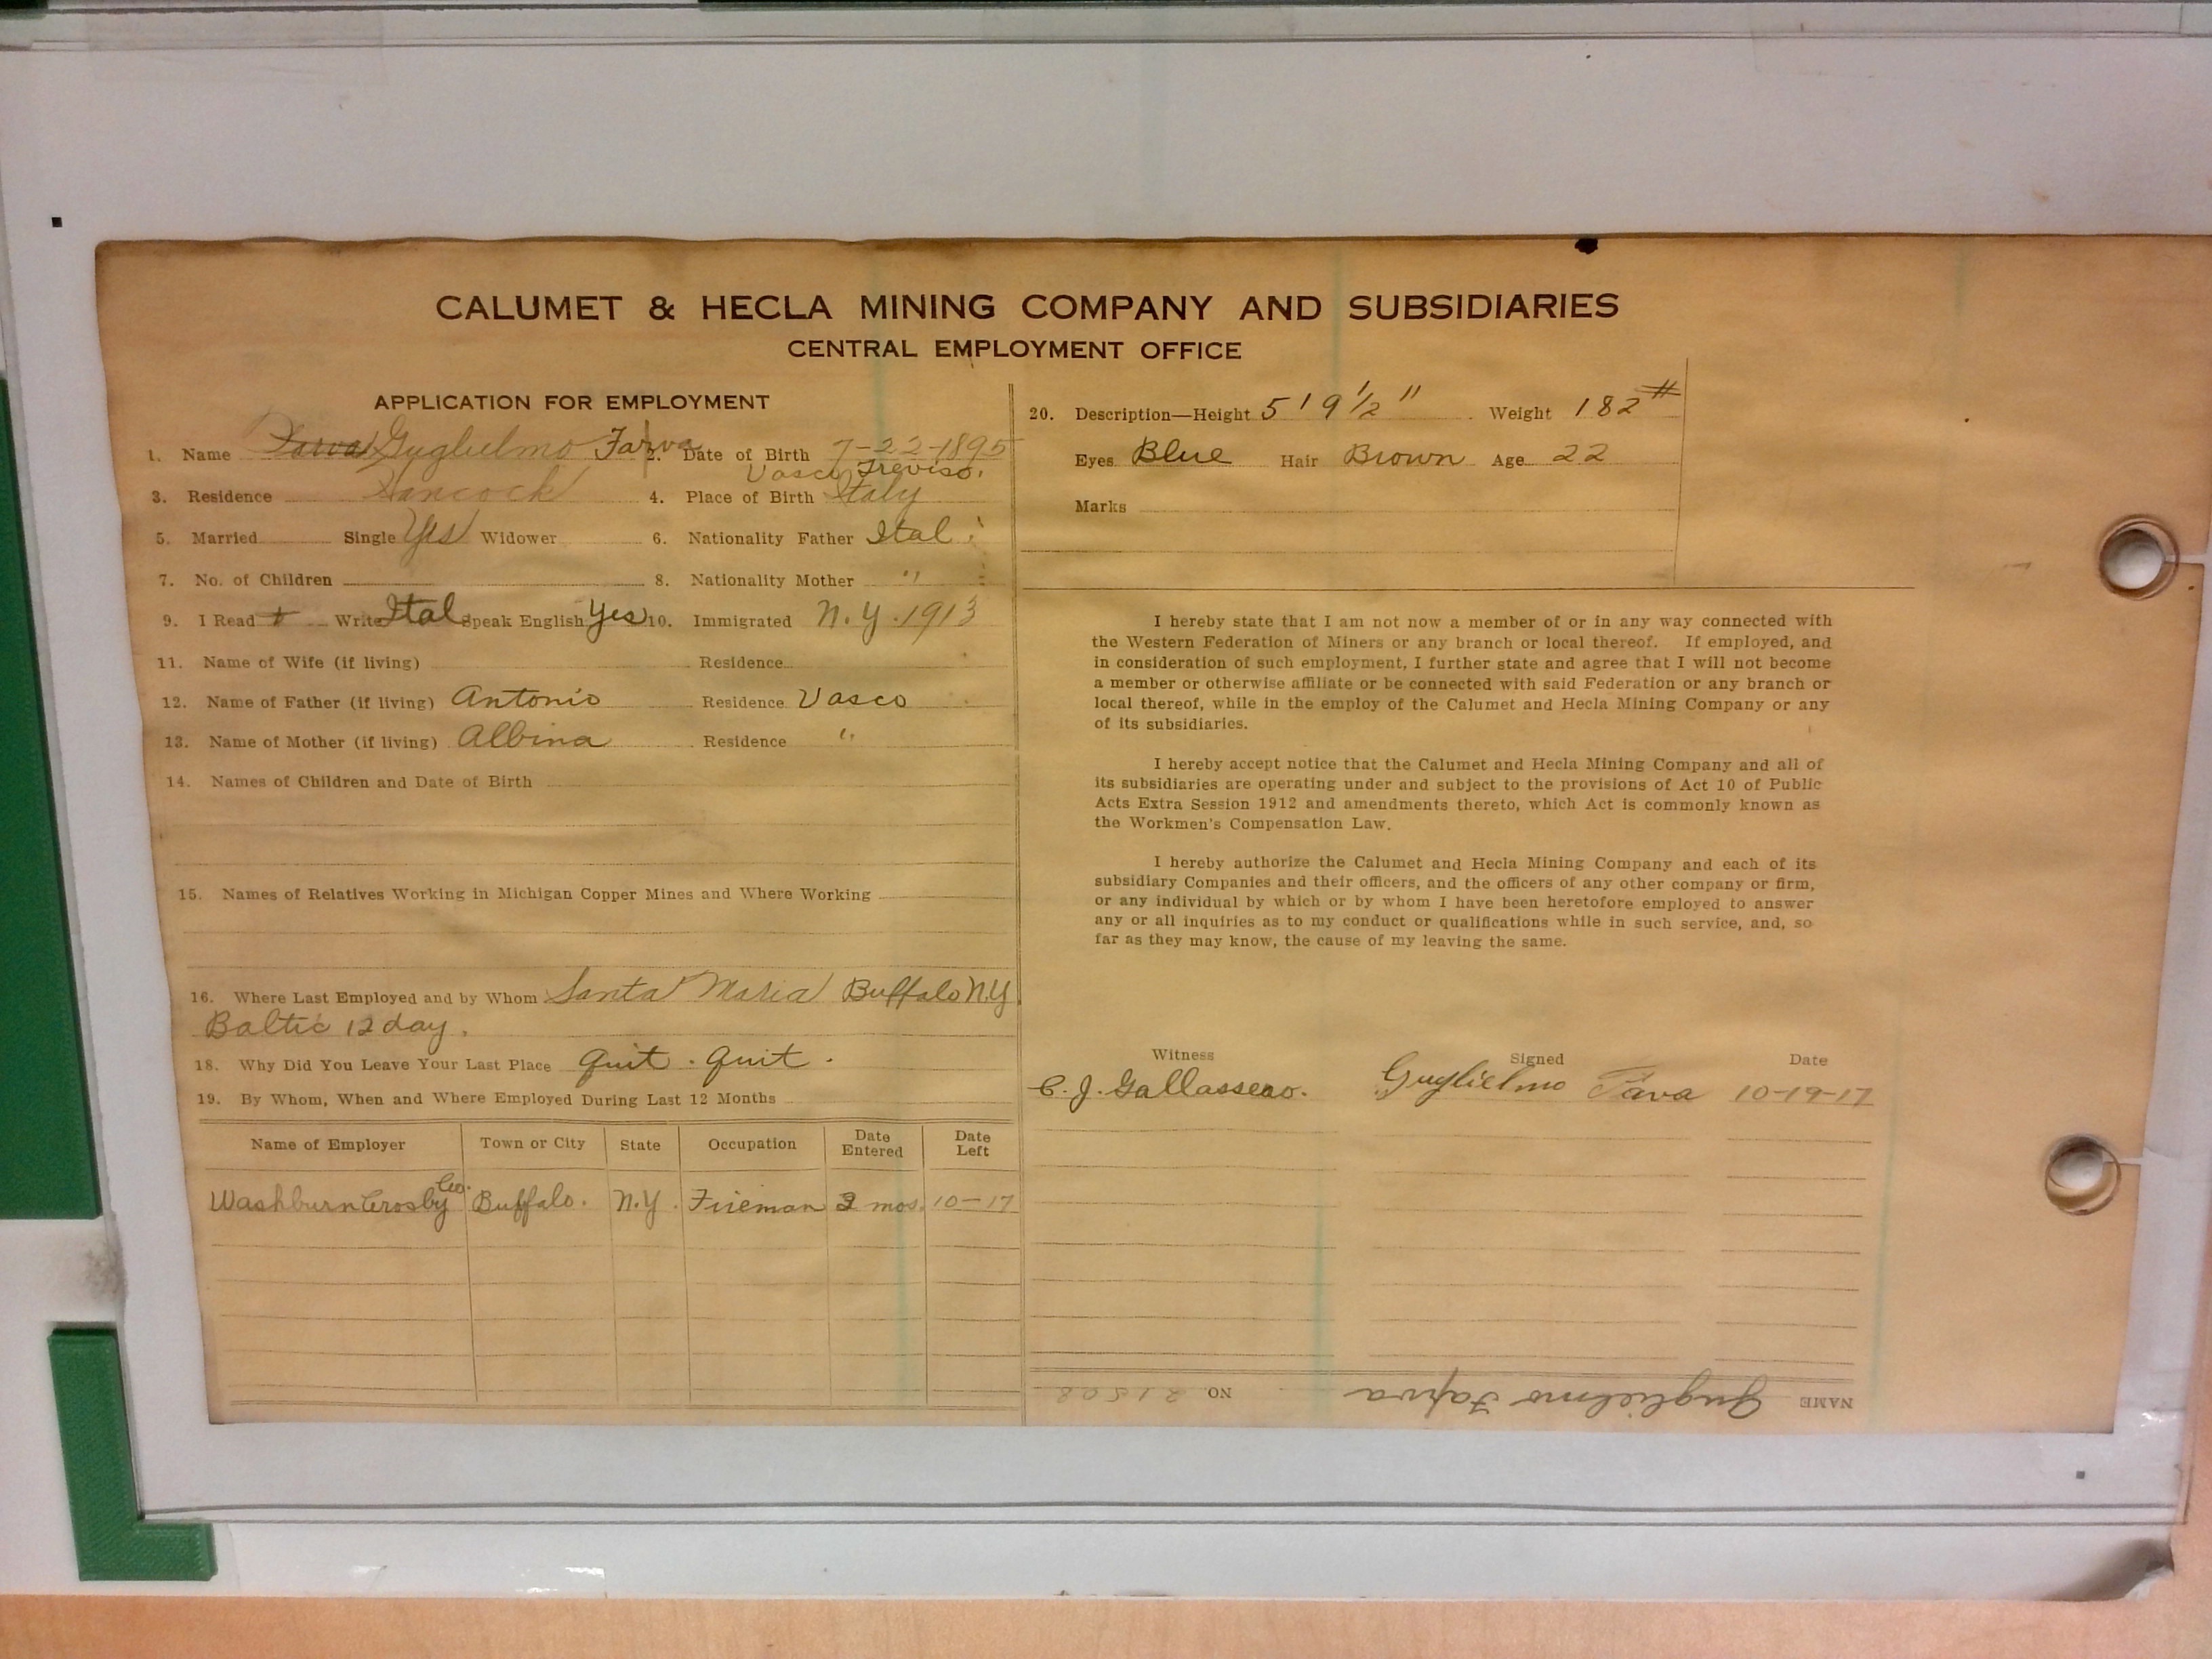 CALUMET & HECLA MINING COMPANY AND SUBSIDIARIES
CENTRAL EMPLOYMENT OFFICE
APPLICATION FOR EMPLOYMENT
1. Name Guglielmo Farva 2. Date of Birth 7-22-1895
Vasco, Treviso,
3. Residence Hancock 4. Place of Birth Italy
5. Married Single Yes Widower 6. Nationality Father Ital
7. No. of Children 8. Nationality Mother "
9. I Read + Write Ital Speak English Yes 10. Immigrated N.Y. 1913
11. Name of Wife (if living) Residence
12. Name of Father (if living) Antonio Residence Vasco
13. Name of Mother (if living) Albina Residence "
14. Names of Children and Date of Birth
15. Names of Relatives Working in Michigan Copper Mines and Where Working
16. Where Last Employed and by Whom Santa Maria Buffalo N.Y
Baltic 12 day.
18. Why Did You Leave Your Last Place Quit . Quit .
19. By Whom, When and Where Employed During Last 12 Months
Name of Employer Town or City State Occupation Date Entered Date Left
Washburn Crosby Co. Buffalo. N.Y. Fireman 2 mos. 10-17
20. Description—Height 5' 9 1/2 " Weight 182 #
Eyes Blue Hair Brown Age 22
Marks
I hereby state that I am not now a member of or in any way connected with
the Western Federation of Miners or any branch or local thereof. If employed, and
in consideration of such employment, I further state and agree that I will not become
a member or otherwise affiliate or be connected with said Federation or any branch or
local thereof, while in the employ of the Calumet and Hecla Mining Company or any
of its subsidiaries.
I hereby accept notice that the Calumet and Hecla Mining Company and all of
its subsidiaries are operating under and subject to the provisions of Act 10 of Public
Acts Extra Session 1912 and amendments thereto, which Act is commonly known as
the Workmen's Compensation Law.
I hereby authorize the Calumet and Hecla Mining Company and each of its
subsidiary Companies and their officers, and the officers of any other company or firm,
or any individual by which or by whom I have been heretofore employed to answer
any or all inquiries as to my conduct or qualifications while in such service, and, so
far as they may know, the cause of my leaving the same.
Witness Signed Date
C. J. Gallasseao. Guglielmo Fava 10-19-17
NAME Guglielmo Farva NO 21508